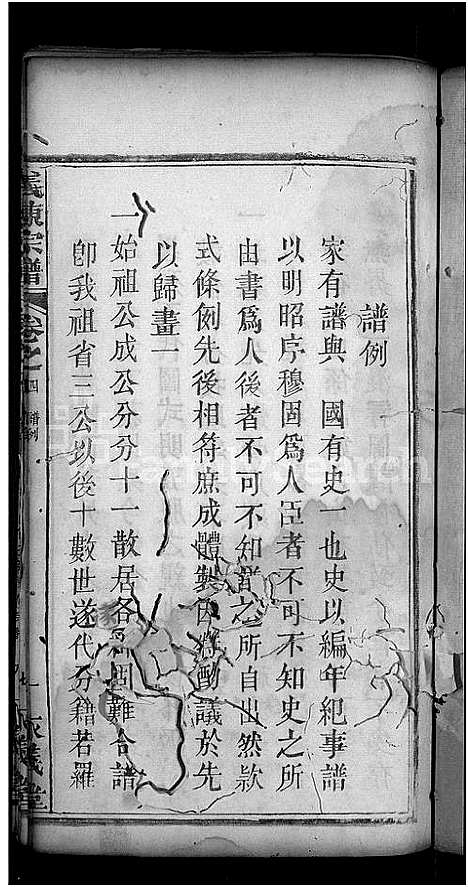 譜例
家有譜與國有史一也史以編年紀事譜
以明昭序穆固爲人臣者不可不知史之所
由書爲人後者不可不知譜之所自出然款
式條例先後相符庶成體製因將酌議於先
以歸畫一
一始祖公成公分分十一散居各 固難合譜
卽我祖省三公以後十數世遂代分籍若羅
義陳宗譜
卷之四
譜例
義堂